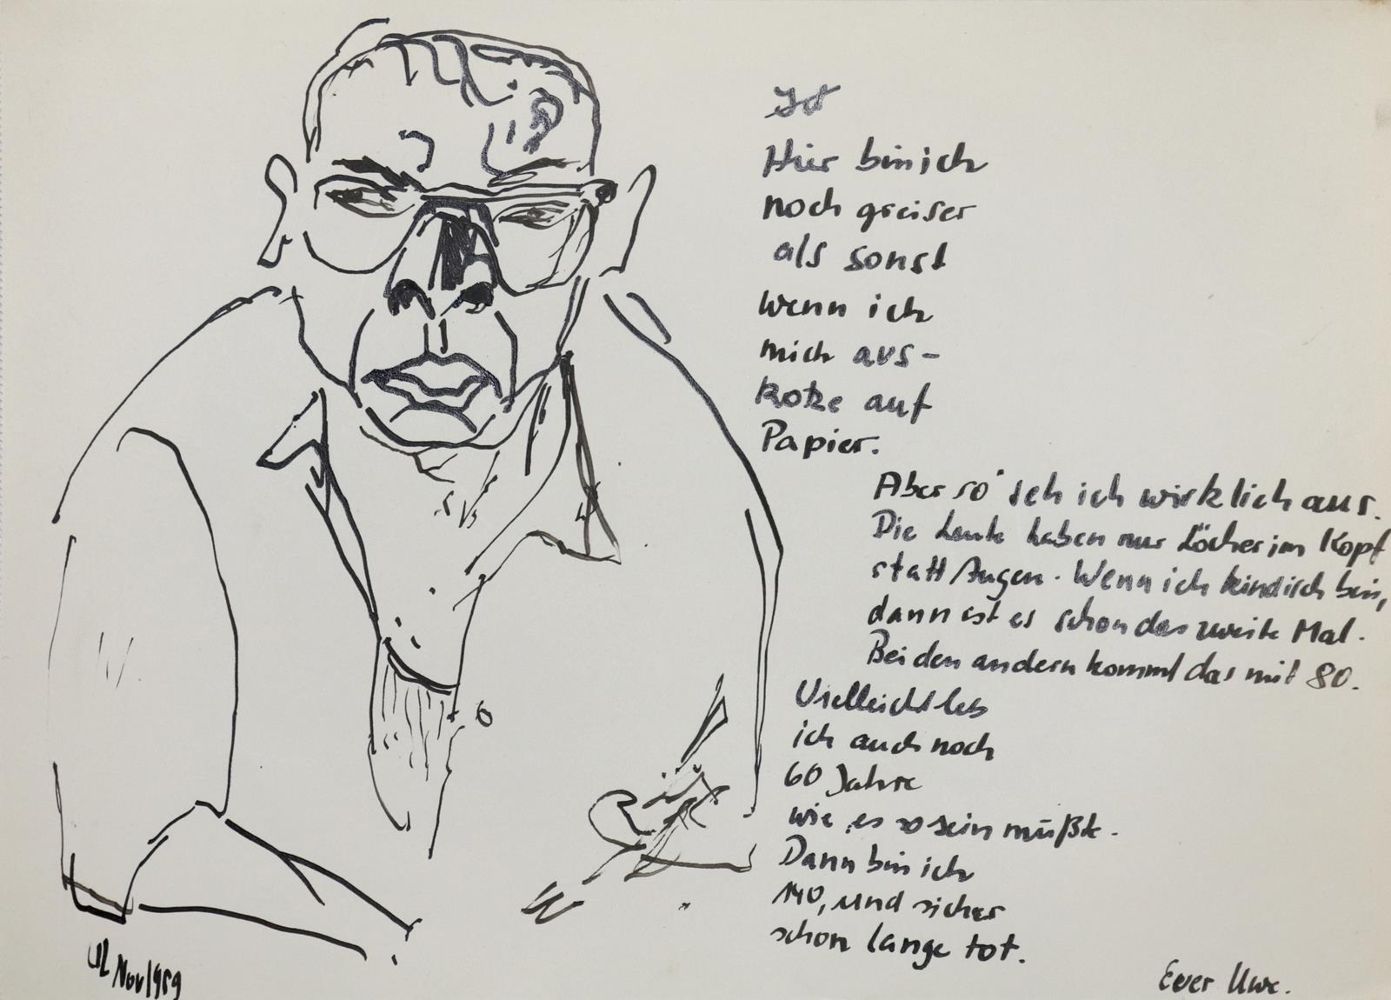 Hier bin ich
noch greiser
als sonst
wenn ich
mich aus-
kotze auf
Papier.
Aber so seh ich wirklich aus.
Die Leute haben nur Löcher im Kopf
statt Augen. Wenn ich kindisch bin,
dann ist es schon das zweite Mal.
Bei den andern kommt das mit 80.
Vielleicht leb
ich auch noch
60 Jahre
wie es so sein müßte.
Dann bin ich
140, und sicher
schon lange tot.
UL Nov 1989
Euer Uwe.